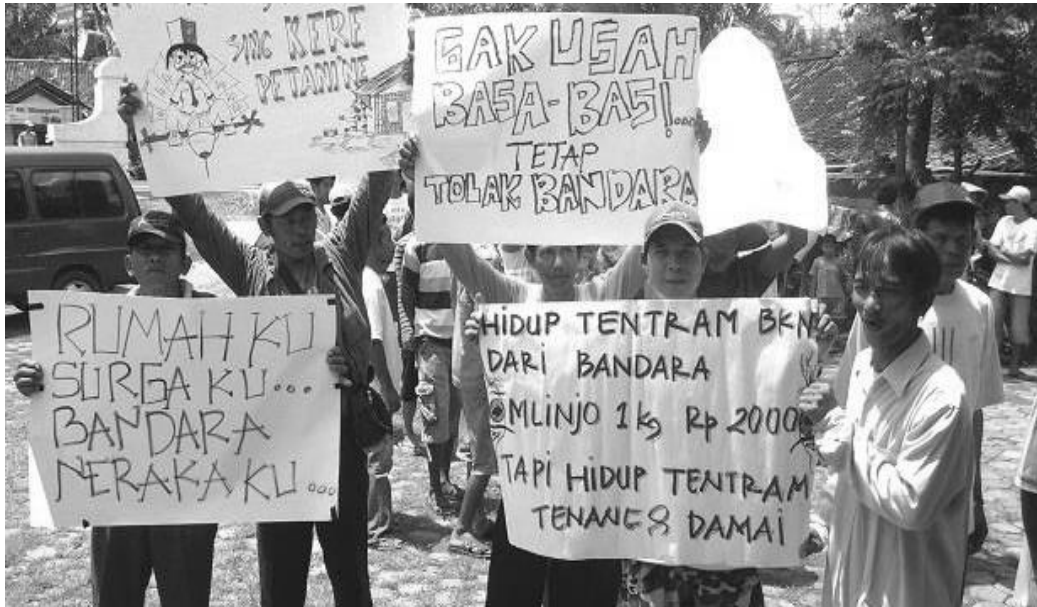 SING KERE
PETANINE
GAK USAH
BASA-BASI!...
TETAP
TOLAK BANDARA
RUMAH KU
SURGA KU...
BANDARA
NERAKA KU...
HIDUP TENTRAM BKN
DARI BANDARA
MLINJO 1 kg Rp 2000
TAPI HIDUP TENTRAM
TENANG & DAMAI